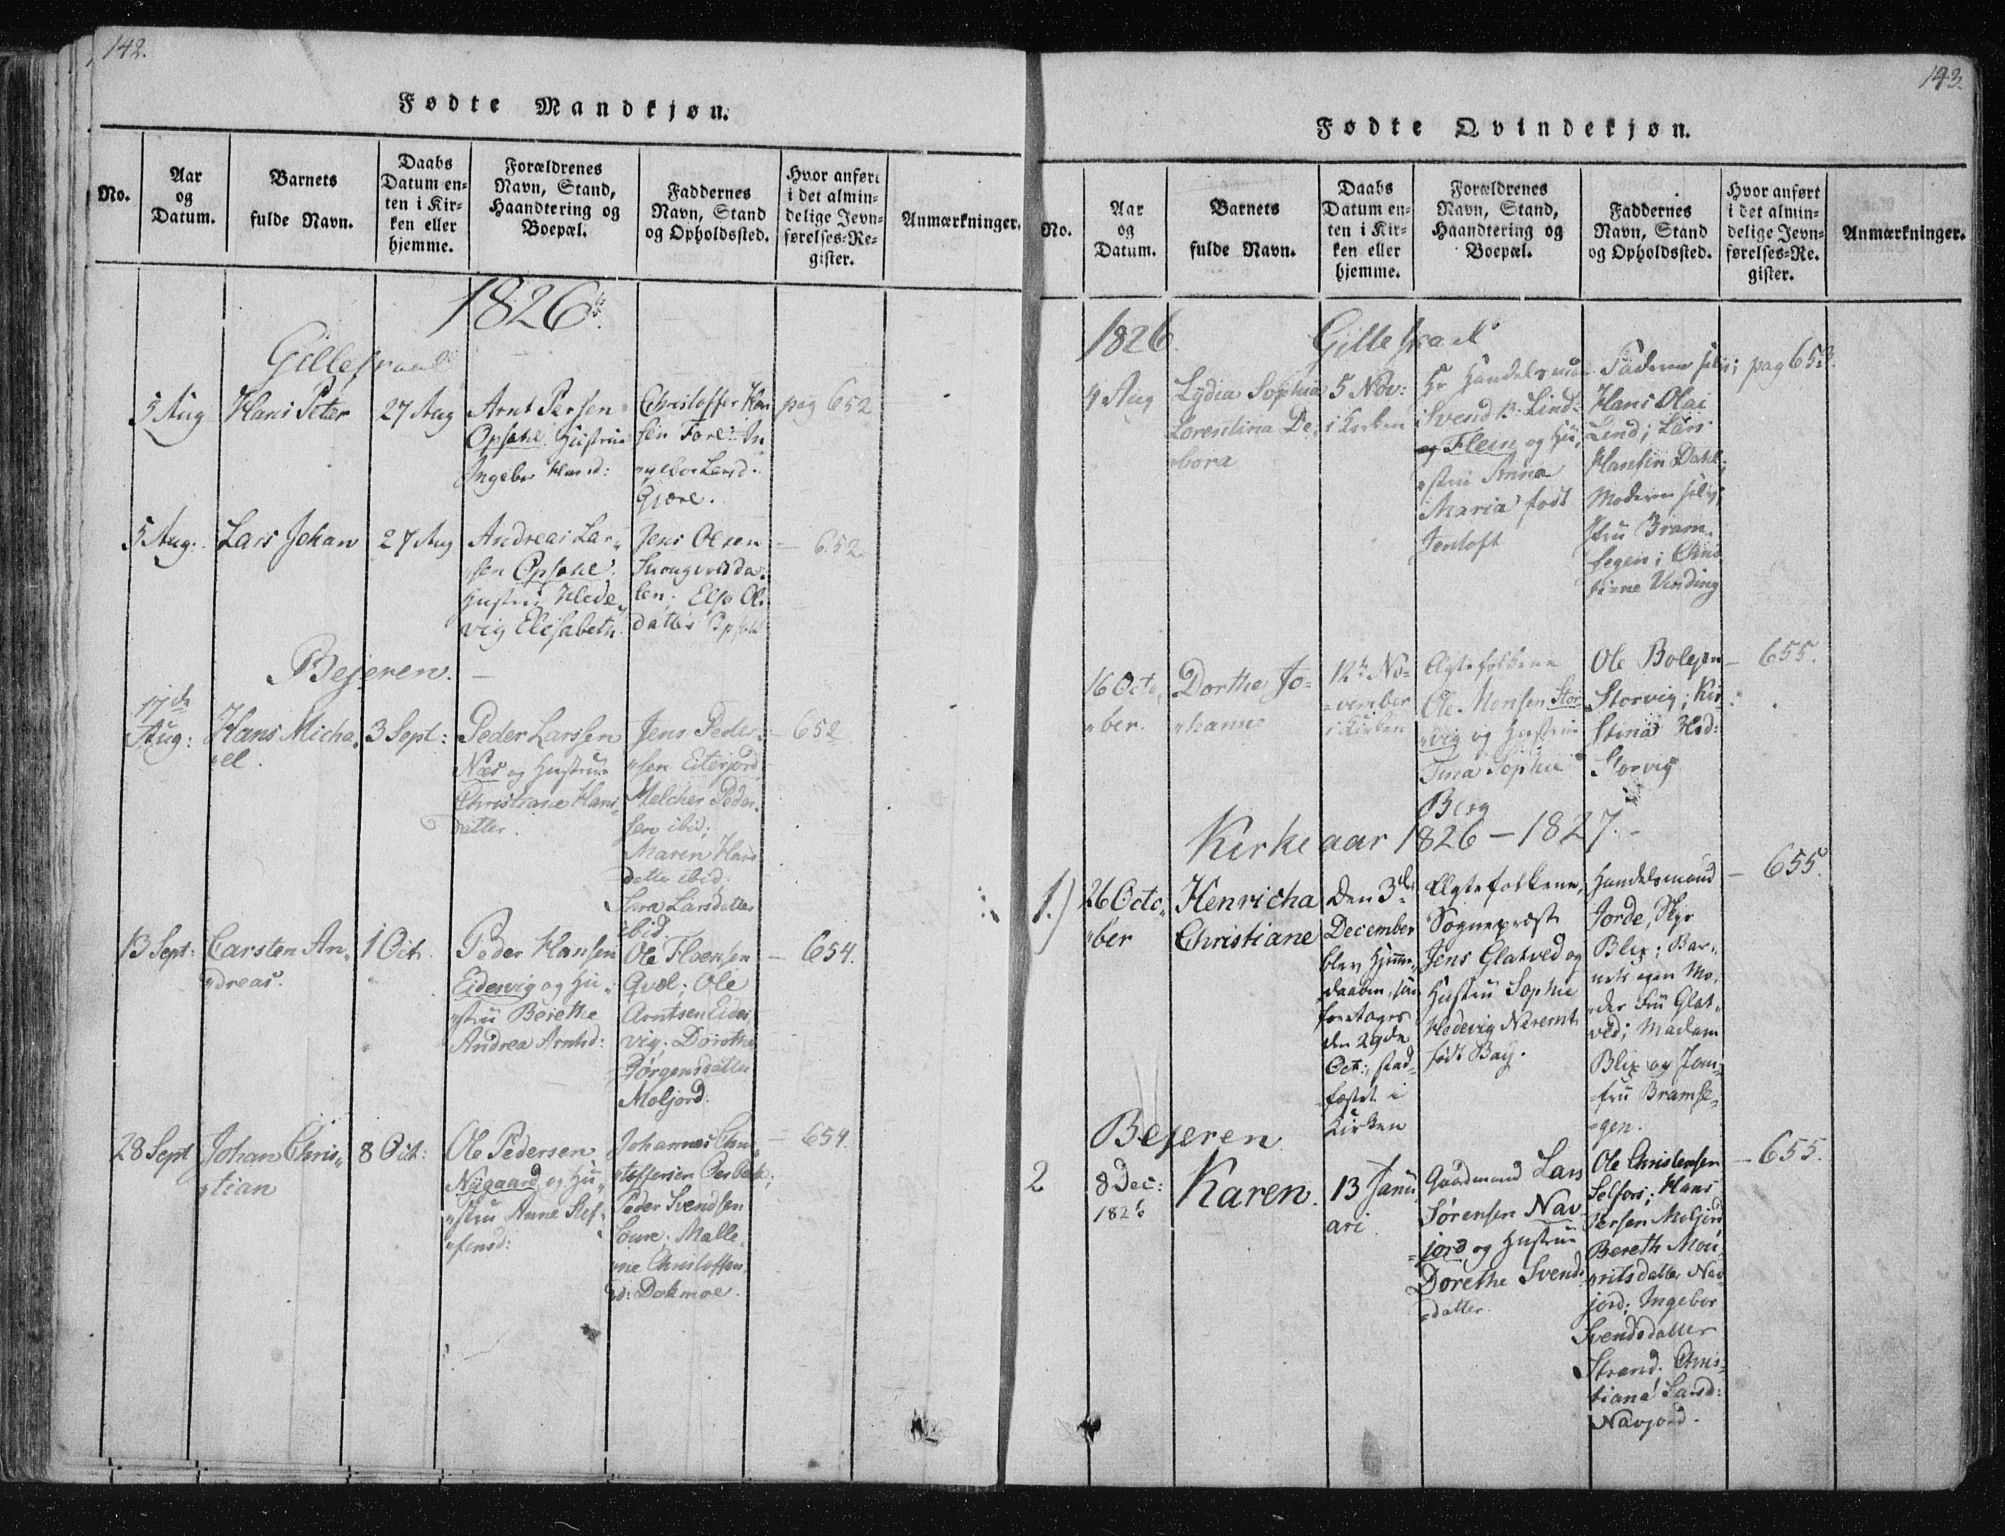 142.
Fødte Mandkjøn.
No.
Aar
og
Datum.
Barnets
fulde Navn.
Daabs
Datum en-
ten i Kir-
ken eller
hjemme.
Forældrenes
Navn, Stand,
Haandtering og
Boepæl.
Faddernes
Navn, Stand
og Opholdssted.
Hvor anført
i det almin-
delige Jevn-
førelses-Re-
gister.
Anmærkninger.
1826
Gilleskaal
5 Aug
Hans Peter
27 Aug
Arnt Persen
Opsahl. Hustrue
Ingebor Hansd:
Christoffer Han
sen Fore. In
gebor Larsd.
Gjære.
pag 652
5 Aug:
Lars Johan
27 Aug
Andreas Lar„
„sen Opsahl.
Hustru Hede„
vig Elisabeth
Jens Olsen
len. Else Ols
datter Opsahl
652.
Bejeren.
17de
Aug:
Hans Micha„
„el.
3 Sept:
Peder Larssen
Næs og Hustrue
Christiane Hans
datter.
Jens Peder„
„sen Eiterjord
Melcher Peder„
sen ibid;
Maren Hans
datter ibid.
Sara Larsdatter
ibid.
652
13 Sept:
Carsten An„
„dreas.
1 Oct.
Peder Hansen
Eidesvig og Hu„
„stru Berethe
Andrea Arntsd:
Ole Floensen
Qvæl; Ole
Arntsen Eides
vig. Dorothe
Jörgensdatter
Moljord.
654.
28 Sept
Johan Chris„
„tian
8 Oct:
Ole Pedersen
Niigaard og Hu„
„stru Anne Stef„
„fensd:
Johannes Chri„
„stoffersen
Peder Svendsen
Soure. Malle„
„ne Christoffers
d: Dokmoe.
654.
143.
Fødte Qvindekjøn.
No.
Aar
og
Datum.
Barnets
fulde Navn.
Daabs
Datum en-
ten i Kir-
ken eller
hjemme.
Forældrenes
Navn, Stand,
Haandtering og
Boepæl.
Faddernes
Navn, Stand
og Opholdssted.
Hvor anført
i det almin-
delige Jevn-
førelses-Re-
gister.
Anmærkninger.
1826.
Gilleskaal
4 Aug
Lydia Sophia
Lorentina De„
„bora
5 Nov:
i Kirken
Hr Handelsmand
Svend B. Lind:
Flein og Hu„
„stru Anna
Maria født
Jentoft
Faderen selv;
Hans Olai
Lind; Lars
Hansen Dahl;
Moderen selv;
Jfru Bram„
segen; Chris
tinne Vinding
pag 653.
16 Octo„
„ber.
Dorthe Jo„
„hanne
12te No„
„vember
i Kirken
Ægtefolkene
Ole Monsen Stor
„vig og Hustrue
Tina Sophie
Berg
Ole Bolesen
Storvig; Kir
stina Hed:
Storvig
655.
Kirkeaar 1826 – 1827.
1.)
26 Octo„
„ber
Henricha
Christiane
Den 3de
December
blev Hjemme„
daaben, som
foretages
den 29de
Oct:, stad„
„fæstet i
Kirken
Ægtefolkene,
Sognepræst
Jens Glatved og
Hustru Sophie
Hedevig Neremt
født Bay.
Handelsmand
Jorde, Skr
Blix; Bar„
nets egen Mo„
„der Fru Glat„
ved; Madam
Blix og Jom„
„fru Bramse„
„gen.
655.
Bejeren
2
8 Dec:
1826
Karen.
13 Janu
ari
Gaardmand Lars
Sörensen Nav„
„jord og Hustrue
Dorethe Svends
„datter.
Ole Christensen
Selfors; Hans
Persen Moljord
Bereth Mou„
„ritsdatter Nav
jord; Ingebor
Svendsdatter
Strand. Chris„
tiana Larsd:
Navjord.
655.